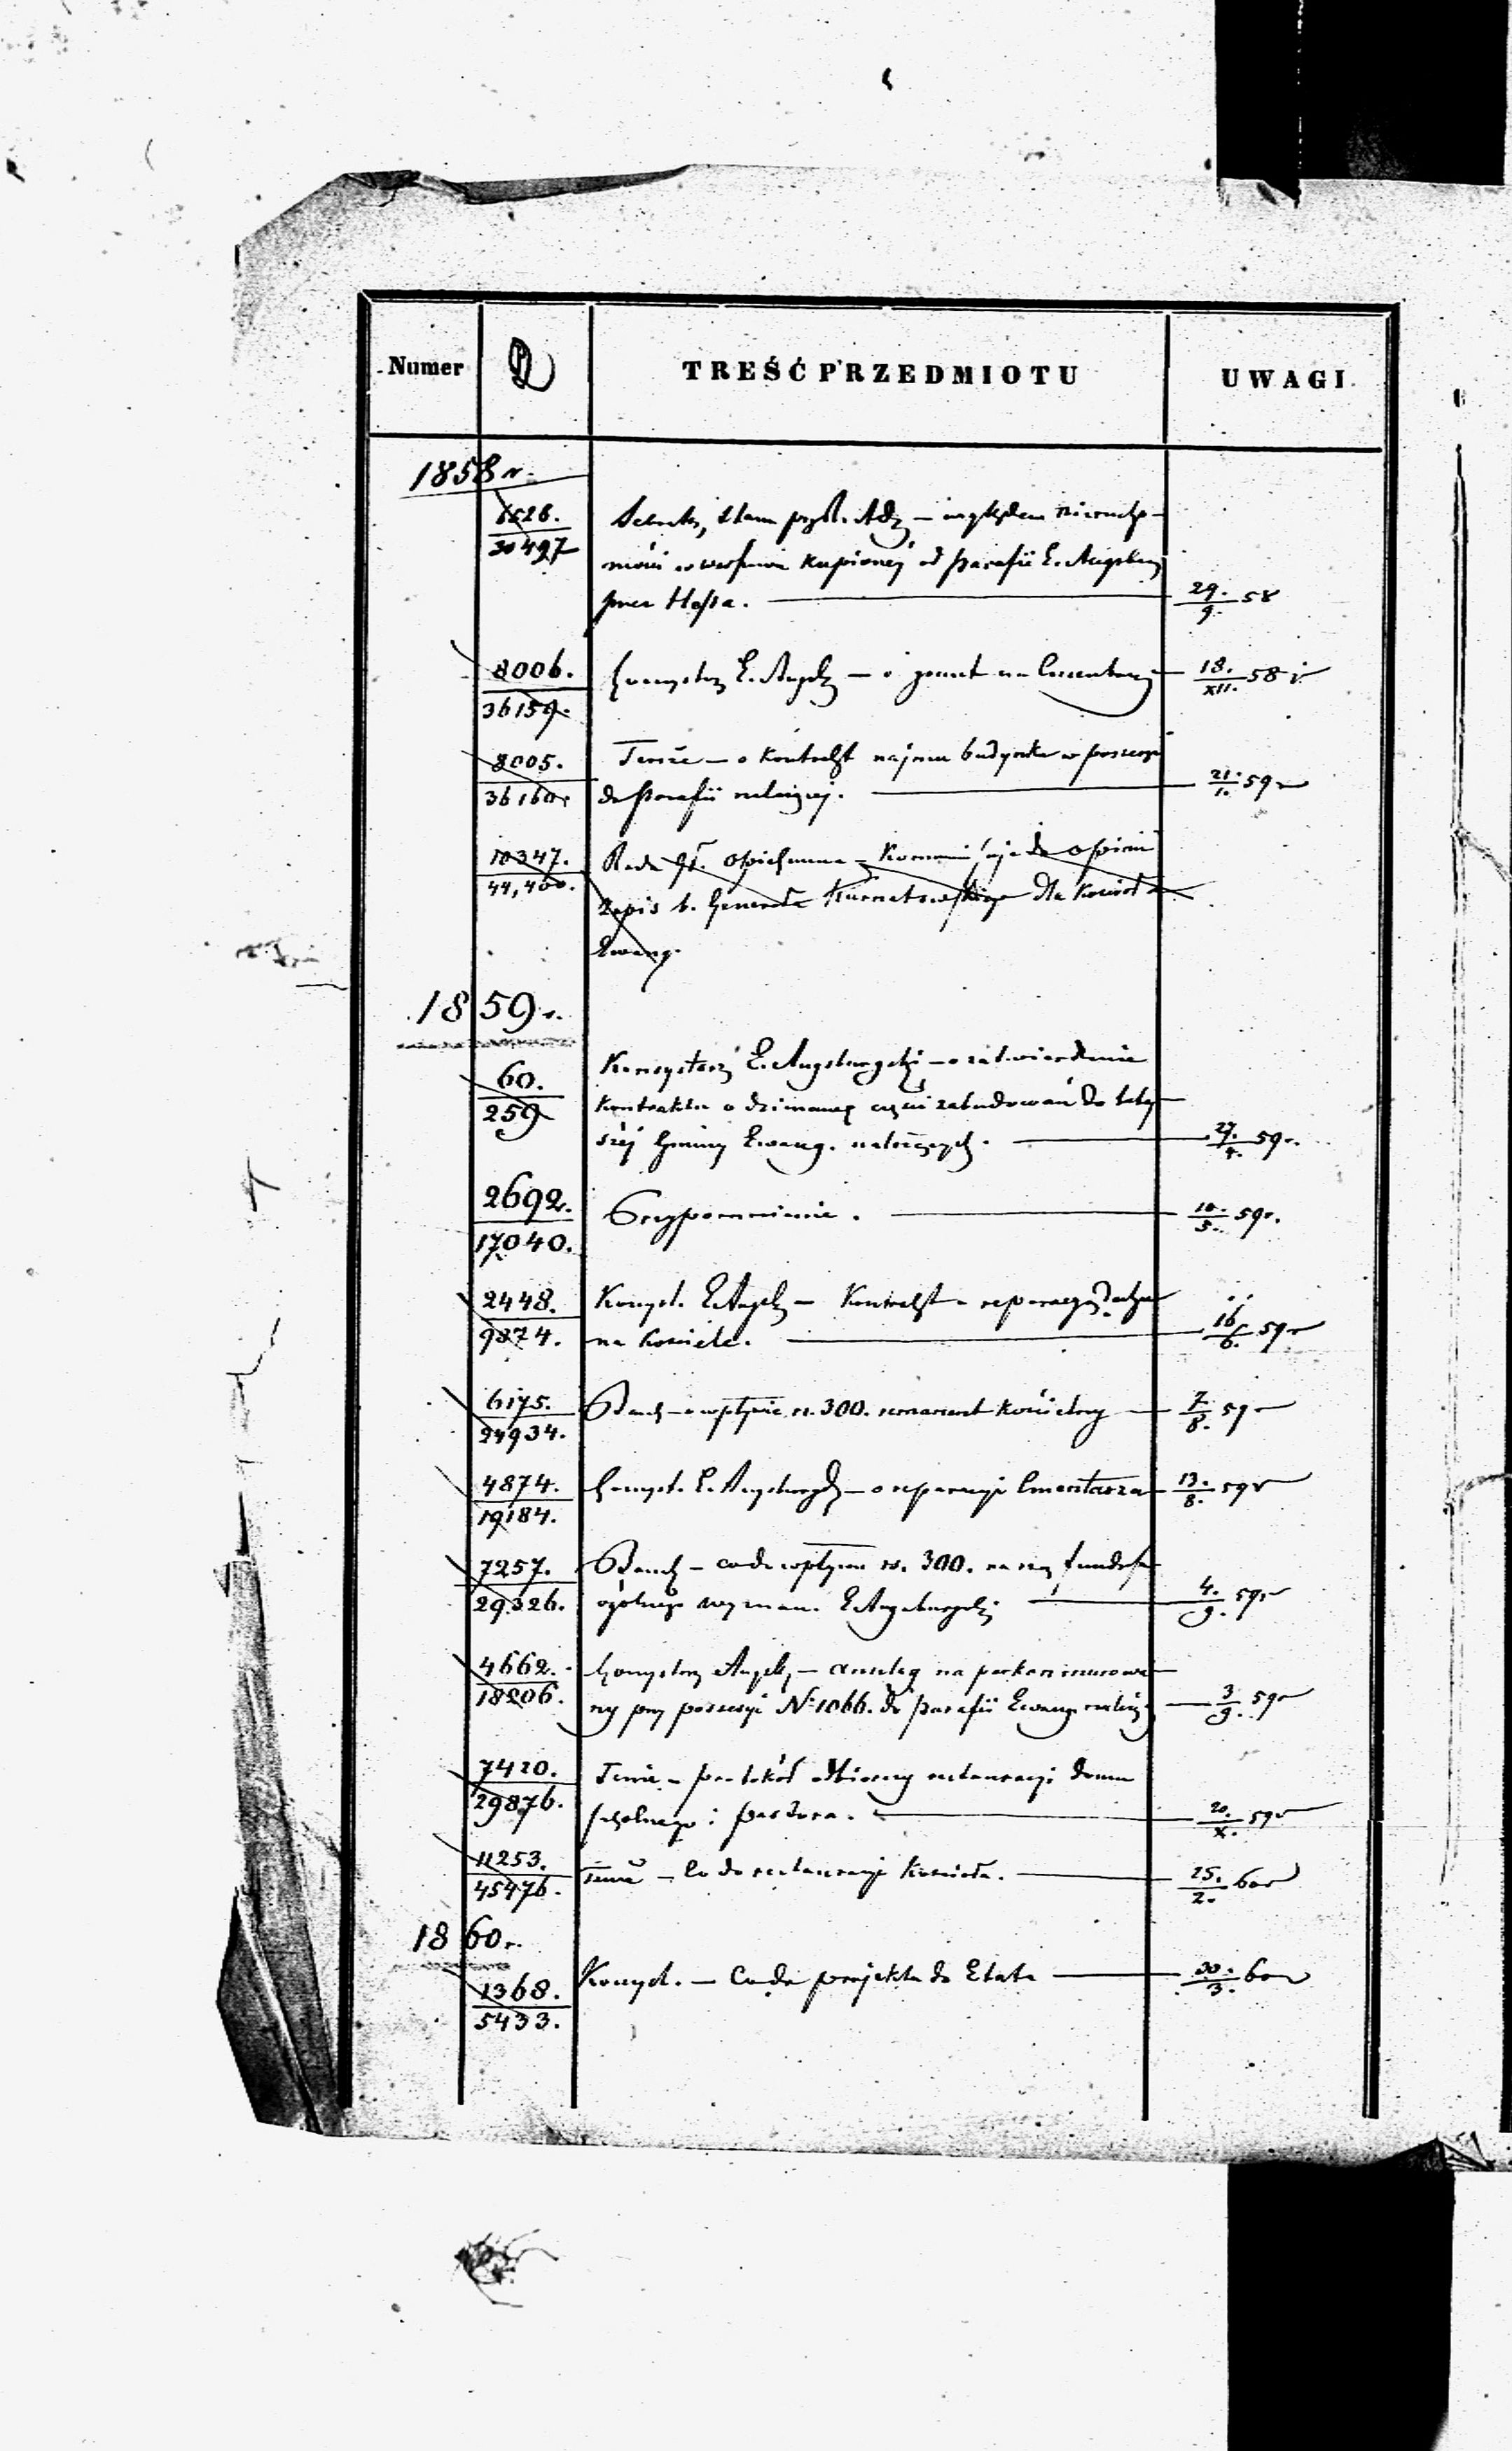 Numer D TREŚĆ PRZEDMIOTU UWAGI
1858 r.
6526.
30497
Sekretarz Stanu przy R. Adz — względem nieruchomości
kupionej od parafii E. Augsburg
przez Hossa. — 29./9. 58
8006. Konsystorz E. Augsb — o grunt na Cmentarz — 18./XII. 58 r
36159.
8005. Tenże — o kontrakt najmu budynku w possesyi
36160. do Parafii należącej. — 21./1. 59 r
10347. Rada Gł. Opiekuńcza — Kommunikuje do opinii
44,400. Zapis b. Generała Kurnatowskiego dla Kościoła
Ewang.
1859 r.
60. Konsystorz E. Augsburgski — o zatwierdzenie
259 kontraktu o dzierżawę części zabudowań do tutejszej
Gminy Ewang. należących. — 27./4. 59 r.
2692. Przypomnienie. — 10./5. 59 r.
17040.
2448. Konsyst. E. Augsb — Kontrakt o reperacyą dachu
9874. na Kościele. — 16/6. 59 r
6175. Bank — o wpływie rs. 300. remanent kościelny — 7/8. 59 r
24934.
4874. Konsyst. E. Augsburgski — o reperacyi Cmentarza — 13./8. 59 r
19184.
7257. Bank — co do wpływu rs. 300. na rzecz funduszu
29326. ogólnego wyznan. E. Augsburgskiej — 4./9. 59 r
4662. Konsystorz Augsb — anszlag na parkan murowany
18206. przy possesyi № 1066. do parafii Ewang. należącej — 3/9. 59 r
7420. Tenże — protokół odbiorczy restauracyi domu
29876. szkolnego i pastora. — 20./X. 59 r
11253. Tenże — Co do restauracyi Kościoła. — 25./2. 60 r
45476.
1860 r.
1368. Konsyst. — Co do projektu do Etatu — 30./3. 60 r
5433.